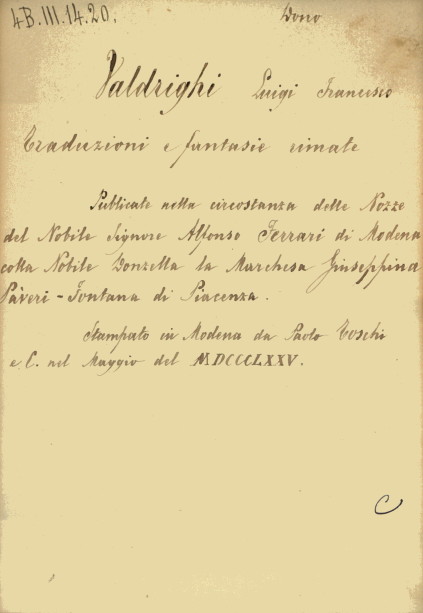 4B.III.14.20.
Dono
Valdrighi Luigi Francesco
Traduzioni e fantasie rimate
Publicate nella circostanza delle Nozze
del Nobile Signore Alfonso Ferrari di Modena
colla Nobile Donzella la Marchesa Giuseppina
Pàveri - Fontana di Piacenza.
Stampato in Modena da Paolo Toschi
e C. nel Maggio del MDCCCLXXV.
C